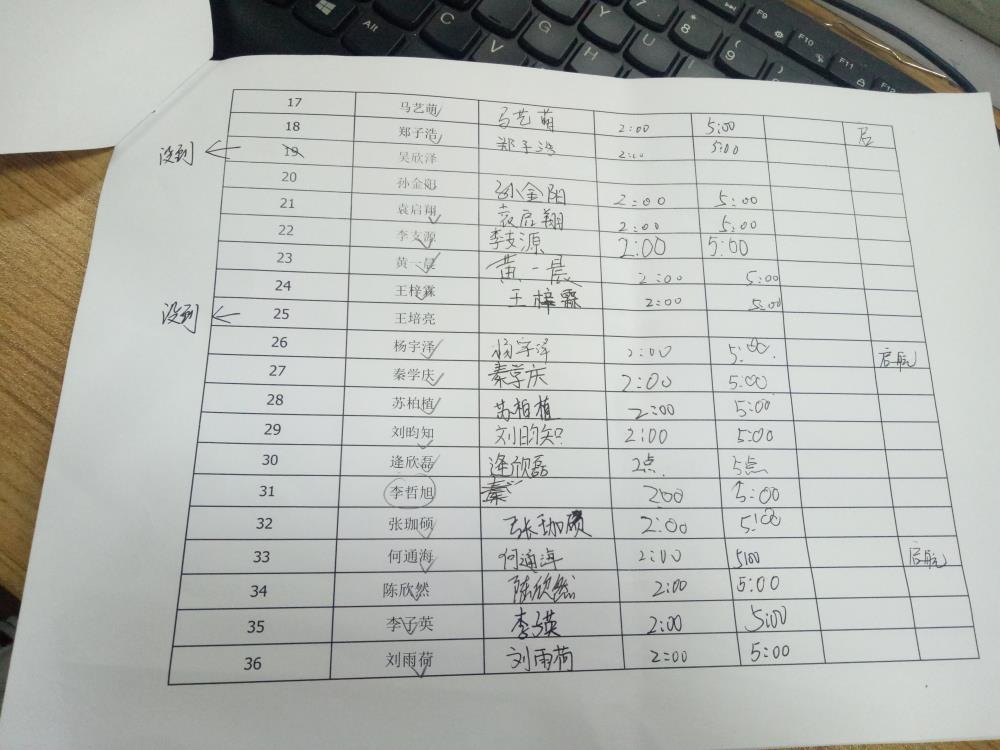 Alt
C
F9
F10
F11
17 马艺萌 马艺萌 2:00 5:00 启
18 郑子浩 郑子浩 2:00 5:00
没到 19 吴欣泽
20 孙金阳 孙金阳 2:00 5:00
21 袁启翔 袁启翔 2:00 5:00
22 李支源 李支源 2:00 5:00
23 黄一晨 黄一晨 2:00 5:00
24 王梓霖 王梓霖 2:00 5:00
没到 25 王培亮
26 杨宇泽 杨宇泽 2:00 5:00 启航
27 秦学庆 秦学庆 2:00 5:00
28 苏柏植 苏柏植 2:00 5:00
29 刘昀知 刘昀知 2:00 5:00
30 逄欣磊 逄欣磊 2点 5点
31 李哲旭 秦 200 5:00
32 张珈硕 张珈硕 2:00 5:00
33 何通海 何通海 2:00 5:00 启航
34 陈欣然 陈欣然 2:00 5:00
35 李子英 李子英 2:00 5:00
36 刘雨荷 刘雨荷 2:00 5:00